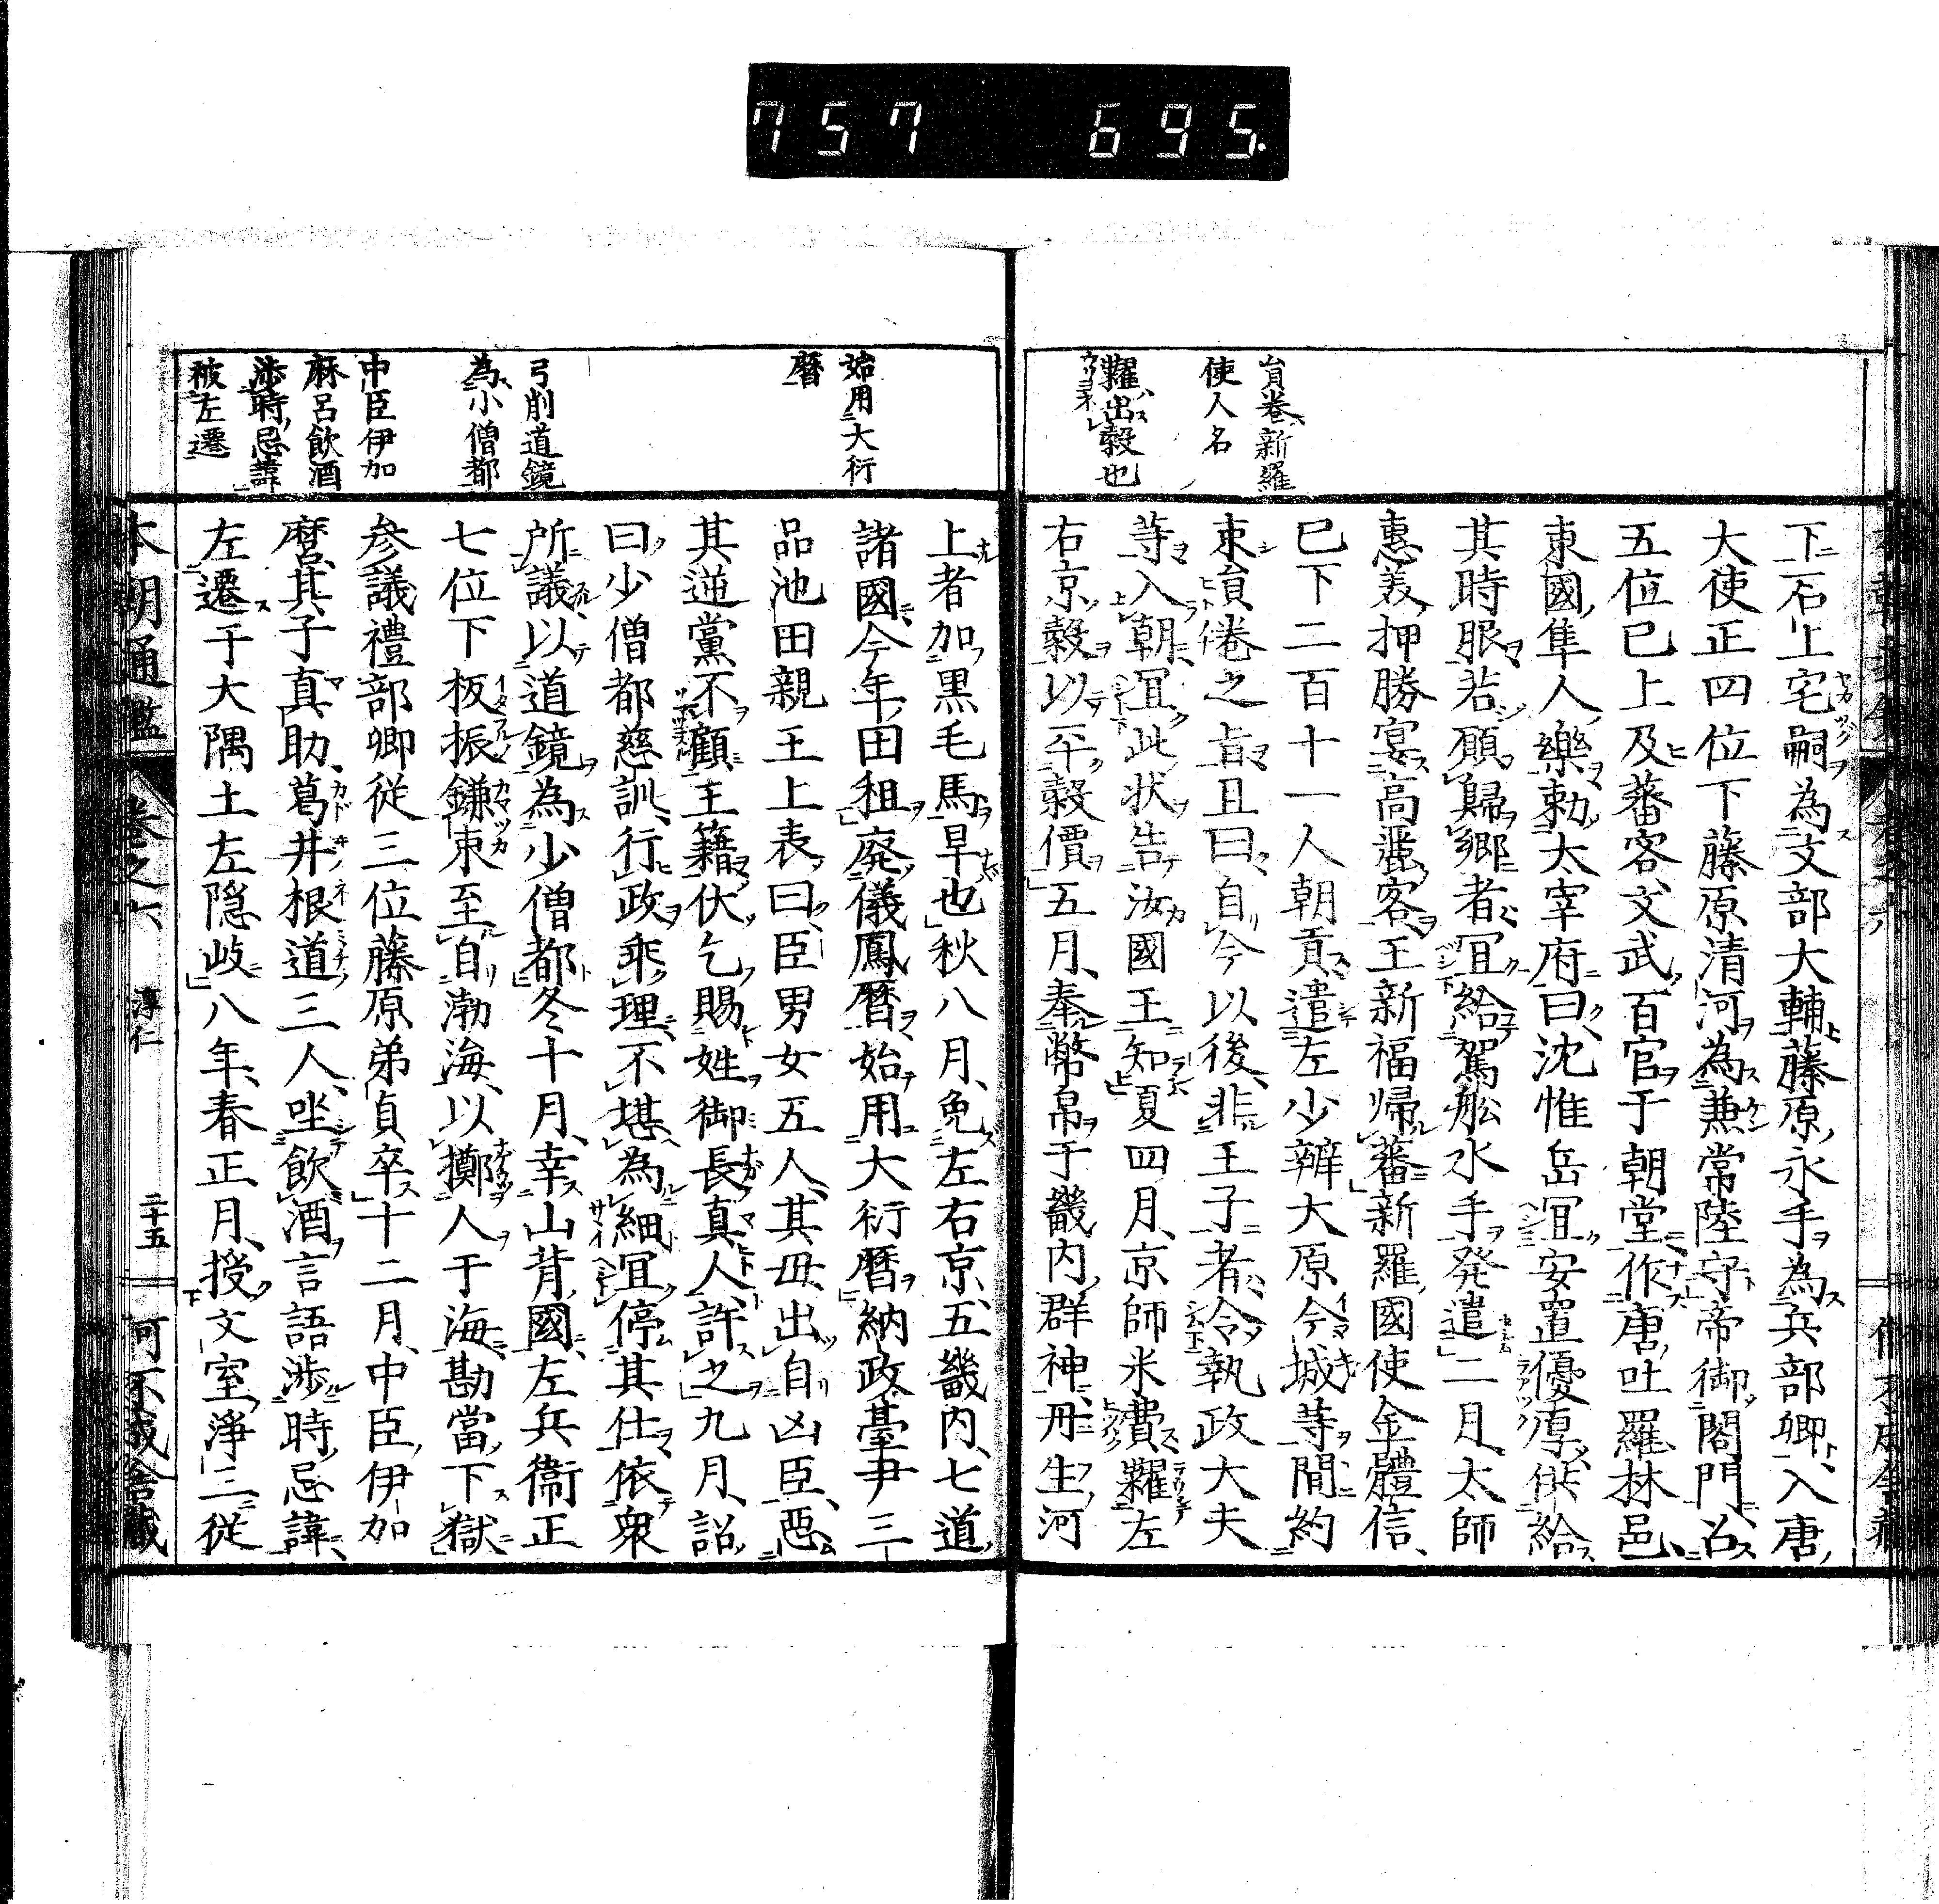 757 695.
貟卷新羅
使人名
糶出糓也
下石上宅嗣為文部大輔藤原永手為兵部卿入唐
大使正四位下藤原清河為兼常陸守帝御閤門
五位已上及蕃客文武百官于朝堂作唐吐羅林邑
東國隼人樂勅太宰府曰沈惟岳冝安置優厚供給
其時服若願歸郷者冝給駕舩水手発遣二月太師
惠美押勝宴高麗客王新福帰蕃新羅國使金體信
已下二百十一人朝貢遣左少辨大原今城䓁問約
束貟倦之旨且曰自今以後非王子者令執政大夫
䓁入朝冝此状告汝國王知夏四月京師米費糶左
右京糓以平糓價五月奉幣帛于畿内群神丹生河
始用大衍
曆
弓削道鏡
為小僧都
中臣伊加
麻呂飲酒
渉時忌諱
被左遷
上者加黒毛馬旱也秋八月免左右京五畿内七道
諸國今年田租廃儀鳳暦始用大衍暦納政䑓尹三
品池田親王上表曰臣男女五人其毋出自凶臣惡
其逆黨不顧王籍伏乞賜姓御長真人許之九月詔
曰少僧都慈訓行政乖理不堪為細冝停其仕依衆
所議以道鏡為少僧都冬十月幸山背國左兵衞正
七位下板振鎌束至自渤海以擲人于海勘當下獄
参議禮部卿従三位藤原弟貞卒十二月中臣伊加
麿其子真助葛井根道三人坐飲酒言語渉時忌諱
左遷于大隅土左隠岐八年春正月授文室淨三従
本朝通鑑 卷之六 淳仁 二十五